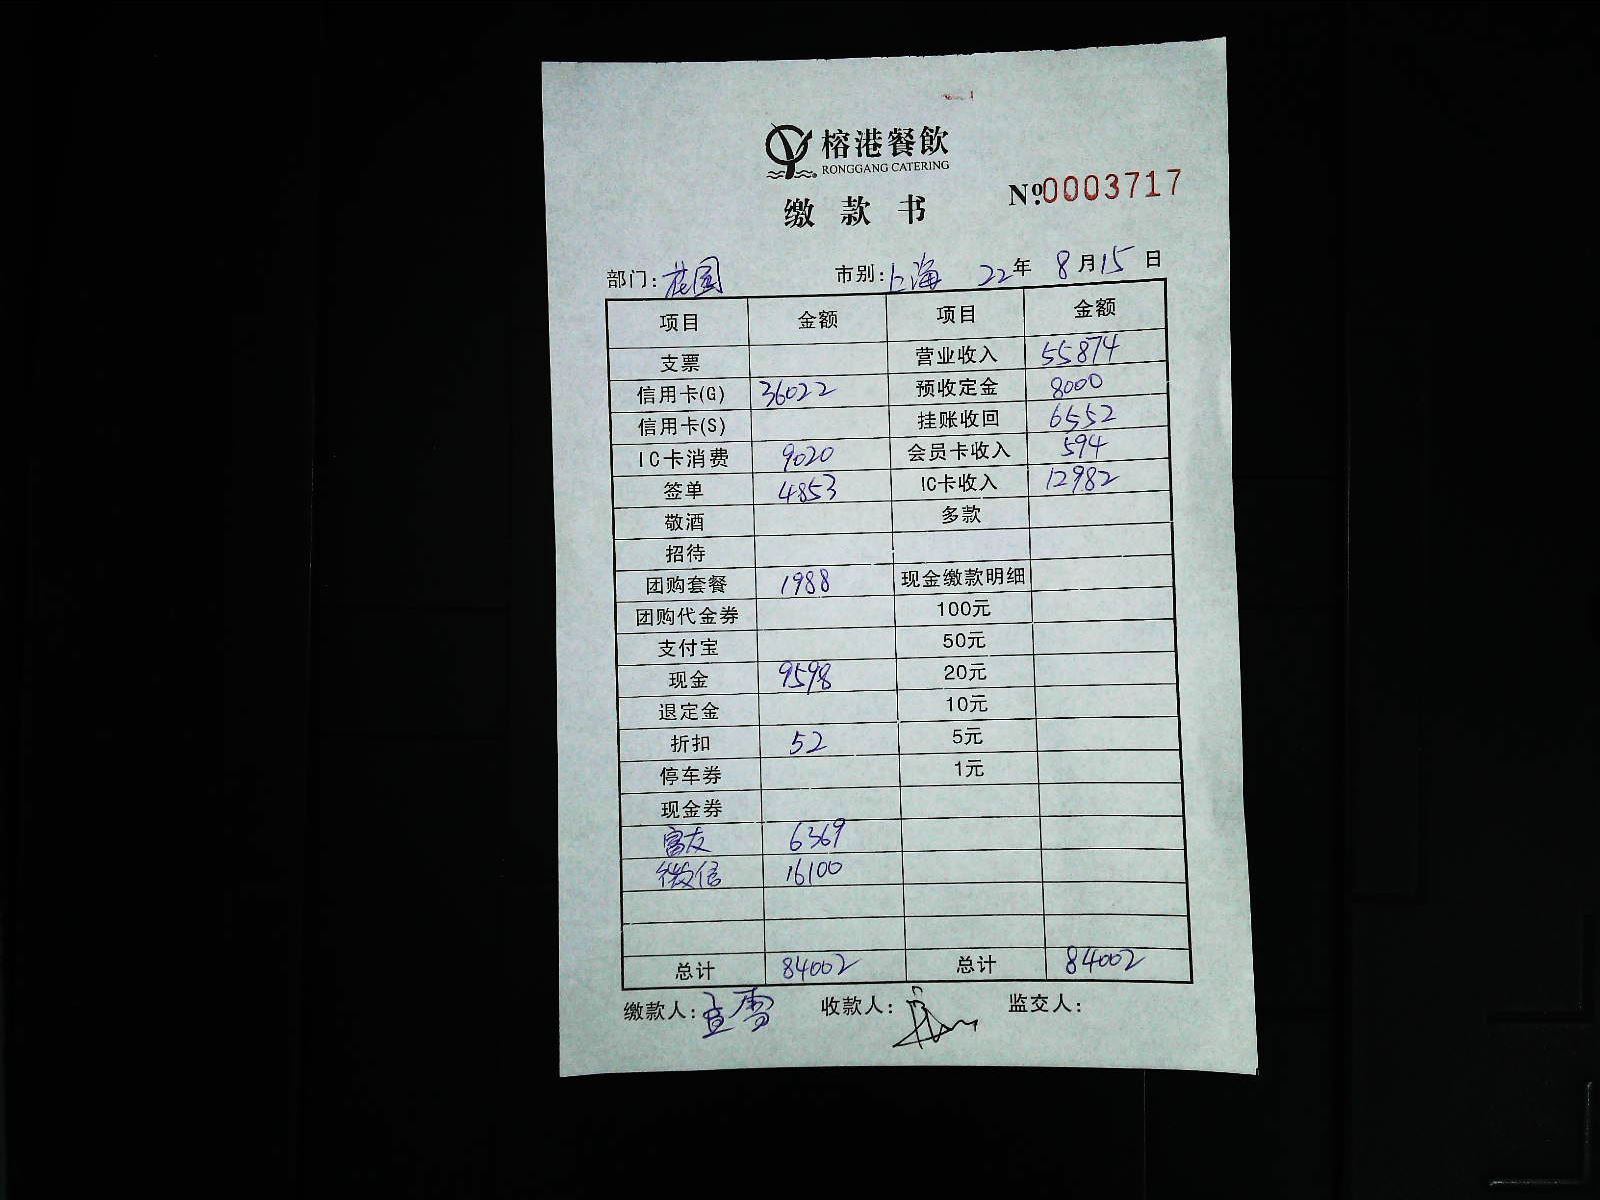 榕港餐飲
RONGGANG CATERING
缴款书
№:0003717
部门:花园 市别:上海 22年 8月15日
项目 金额 项目 金额
支票 营业收入 55874
信用卡(G) 36022 预收定金 8000
信用卡(S) 挂账收回 6552
IC卡消费 9020 会员卡收入 594
签单 4853 IC卡收入 12982
敬酒 多款
招待
团购套餐 1988 现金缴款明细
团购代金券 100元
支付宝 50元
现金 9598 20元
退定金 10元
折扣 52 5元
停车券 1元
现金券
富友 6369
微信 16100
总计 84002 总计 84002
缴款人: 收款人: 监交人: